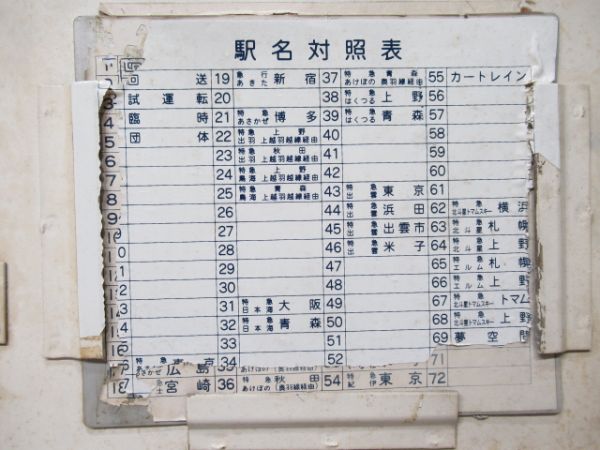 駅名対照表
回 送
試運転
臨 時
団 体
特急 東京
あさかぜ 広島
宮崎
19 急行 あきた 新宿
20
21 特急 あさかぜ 博多
22 特急 上野 出羽 上越羽越線経由
23 特急 秋田 出羽 上越羽越線経由
24 特急 上野 鳥海 上越羽越線経由
25 特急 青森 鳥海 上越羽越線経由
26
27
28
29
30
31 特急 日本海 大阪
32 特急 日本海 青森
33
34
36 特急 秋田 あけぼの(奥羽線経由)
37 特急 青森 あけぼの 奥羽線経由
38 特急 はくつる 上野
39 特急 はくつる 青森
40
41
42
43 特急 出雲 東京
44 特急 出雲 浜田
45 特急 出雲 出雲市
46 特急 出雲 米子
47
48
49
50
51
52
54 特急 紀伊 東京
55 カートレイン
56
57
58
59
60
61
62 特急 北斗星トマムスキー 横浜
63 特急 北斗星 札幌
64 特急 北斗星 上野
65 特急 エルム 札幌
66 特急 エルム 上野
67 特急 北斗星トマムスキー トマム
68 特急 北斗星トマムスキー 上野
69 夢空間
71
72